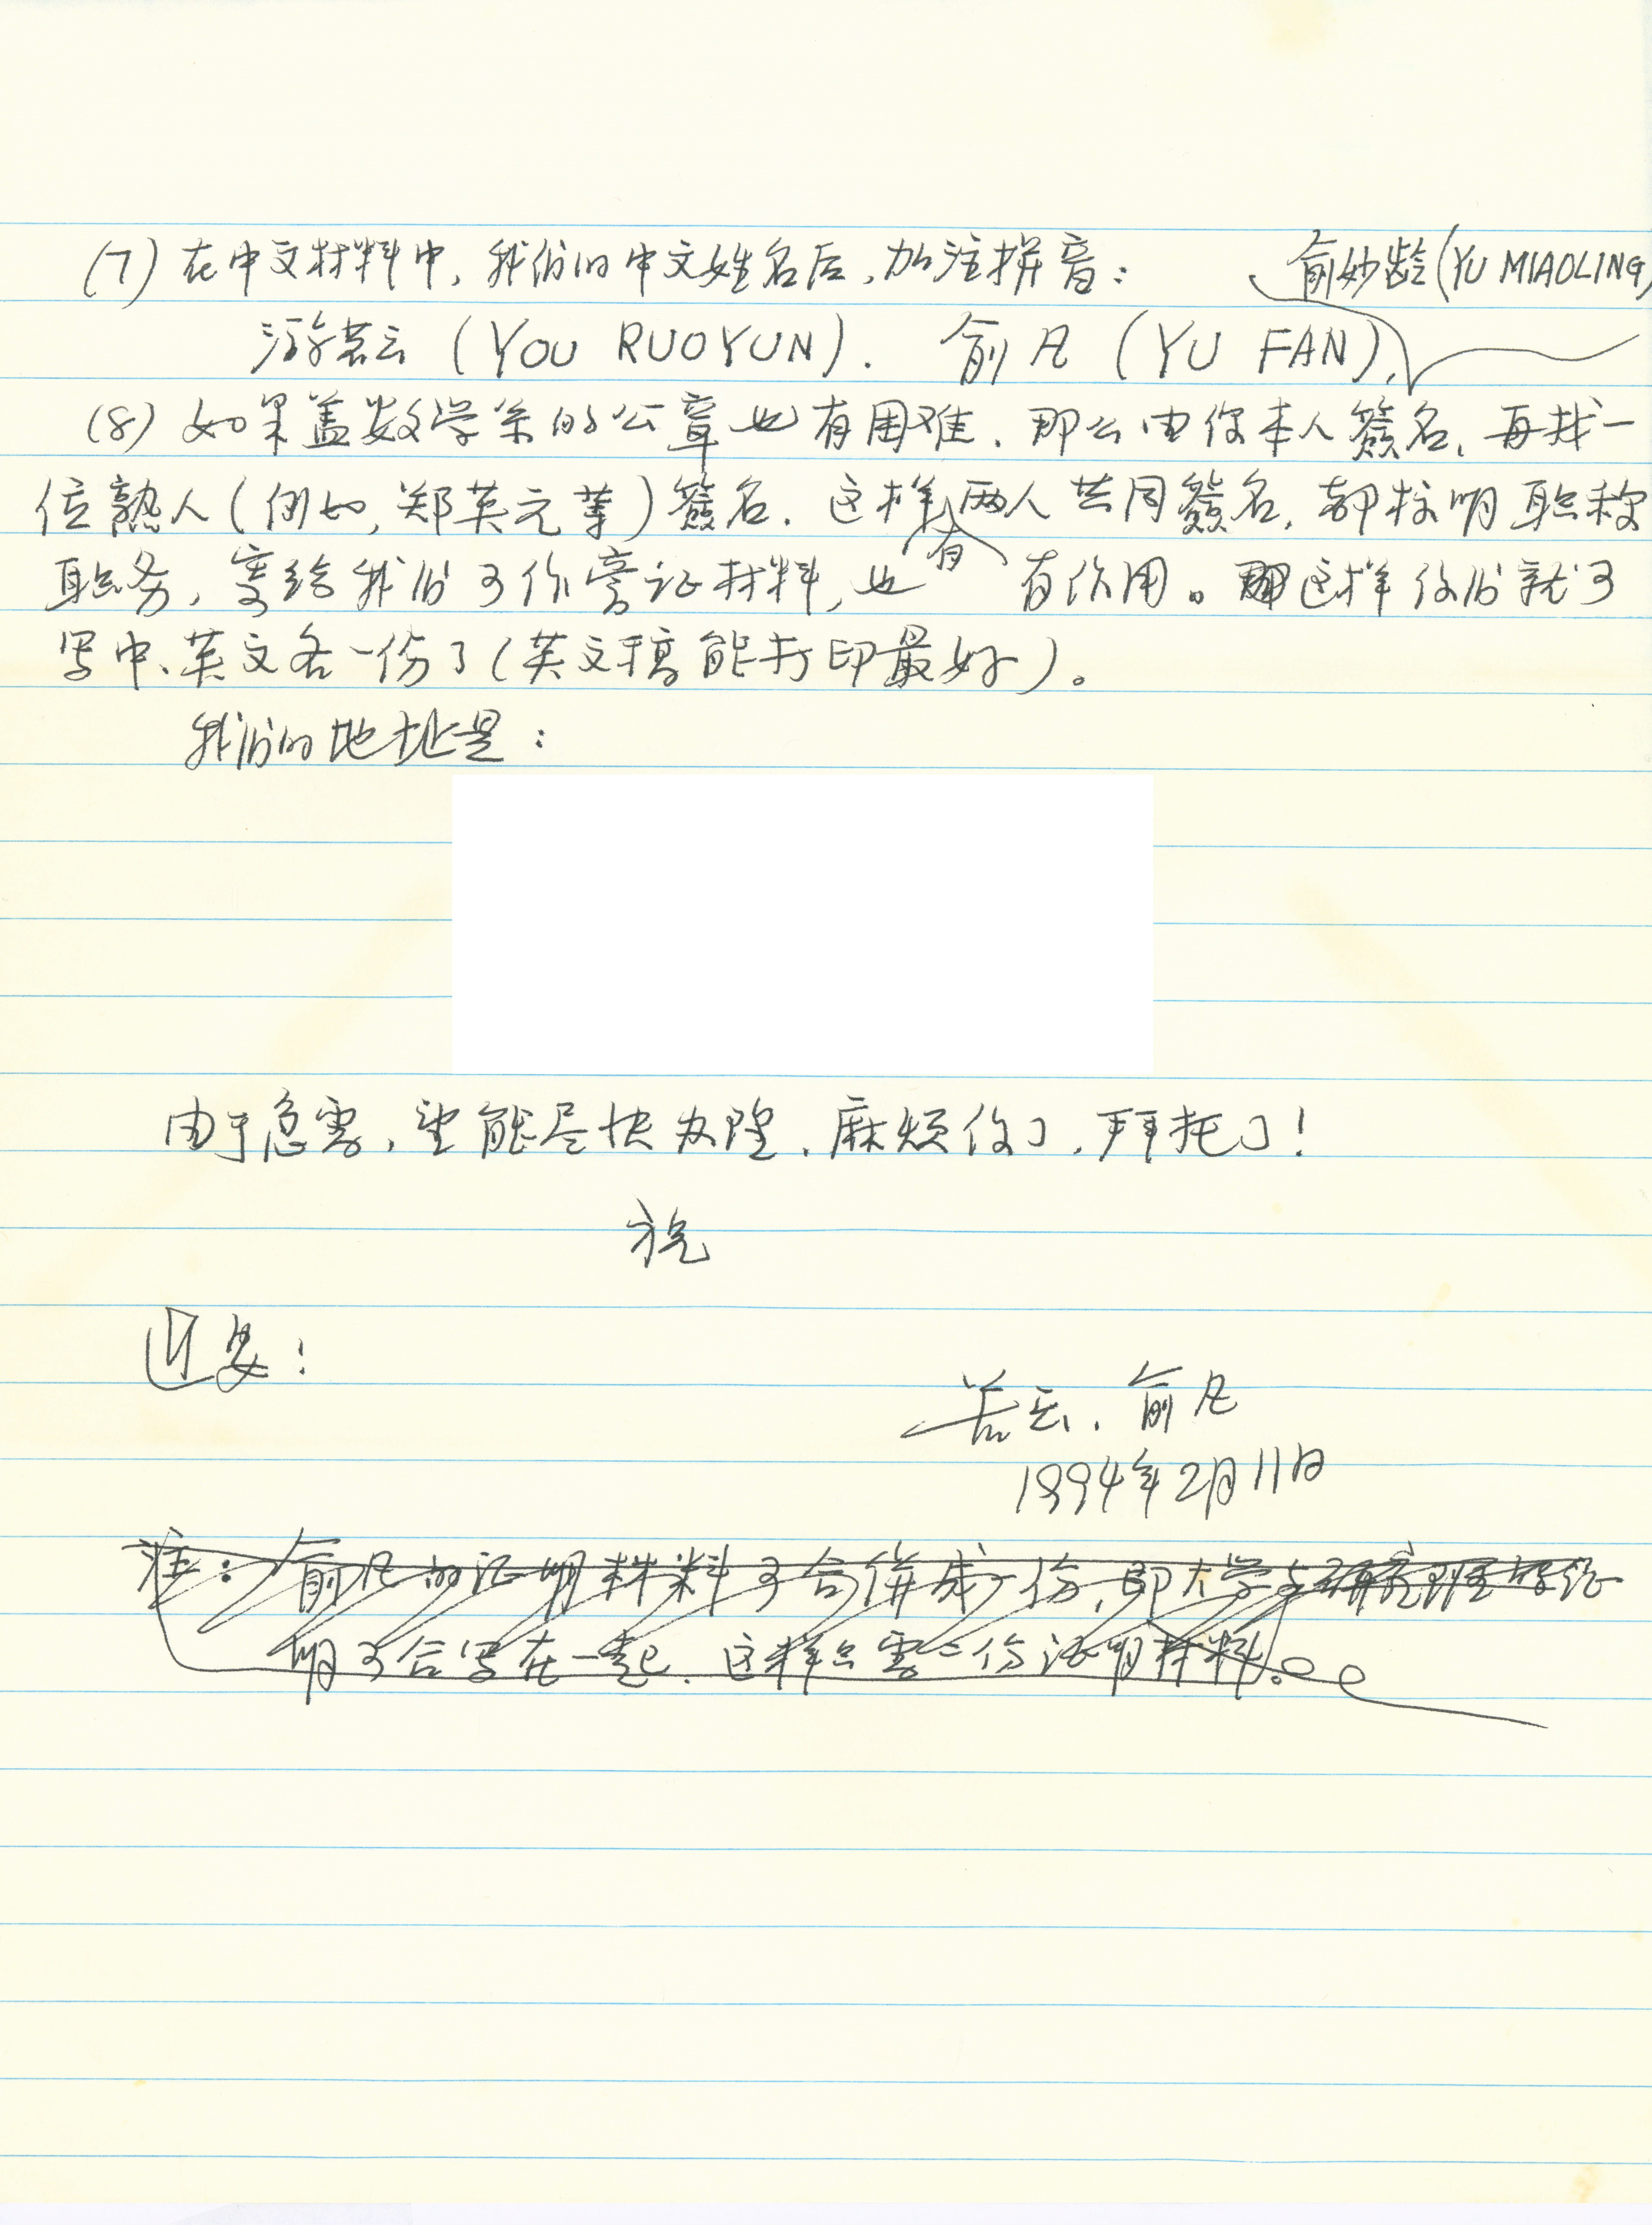 (7) 在中文材料中,我们的中文姓名后,加注拼音:
俞妙龄(YU MIAOLING)
游若云 (YOU RUOYUN). 俞凡 (YU FAN),
(8) 如果盖数学系的公章也有困难.那么由你本人簽名,再找一
位熟人(例如,郑英元等)簽名.这样有两人共同簽名,都标明职称
职务,寄给我们可作旁证材料,也有作用。这样你们就可
写中、英文各一份了(英文稿能打印最好)。
我们的地址是:
由于急需,望能尽快办理.麻烦你了,拜托了!
祝
近安!
若云、俞凡
1994年2月11日
注:俞凡的证明材料可合併成一份,即大学与研究班学经
明可合写在一起.这样只需二份证明材料。